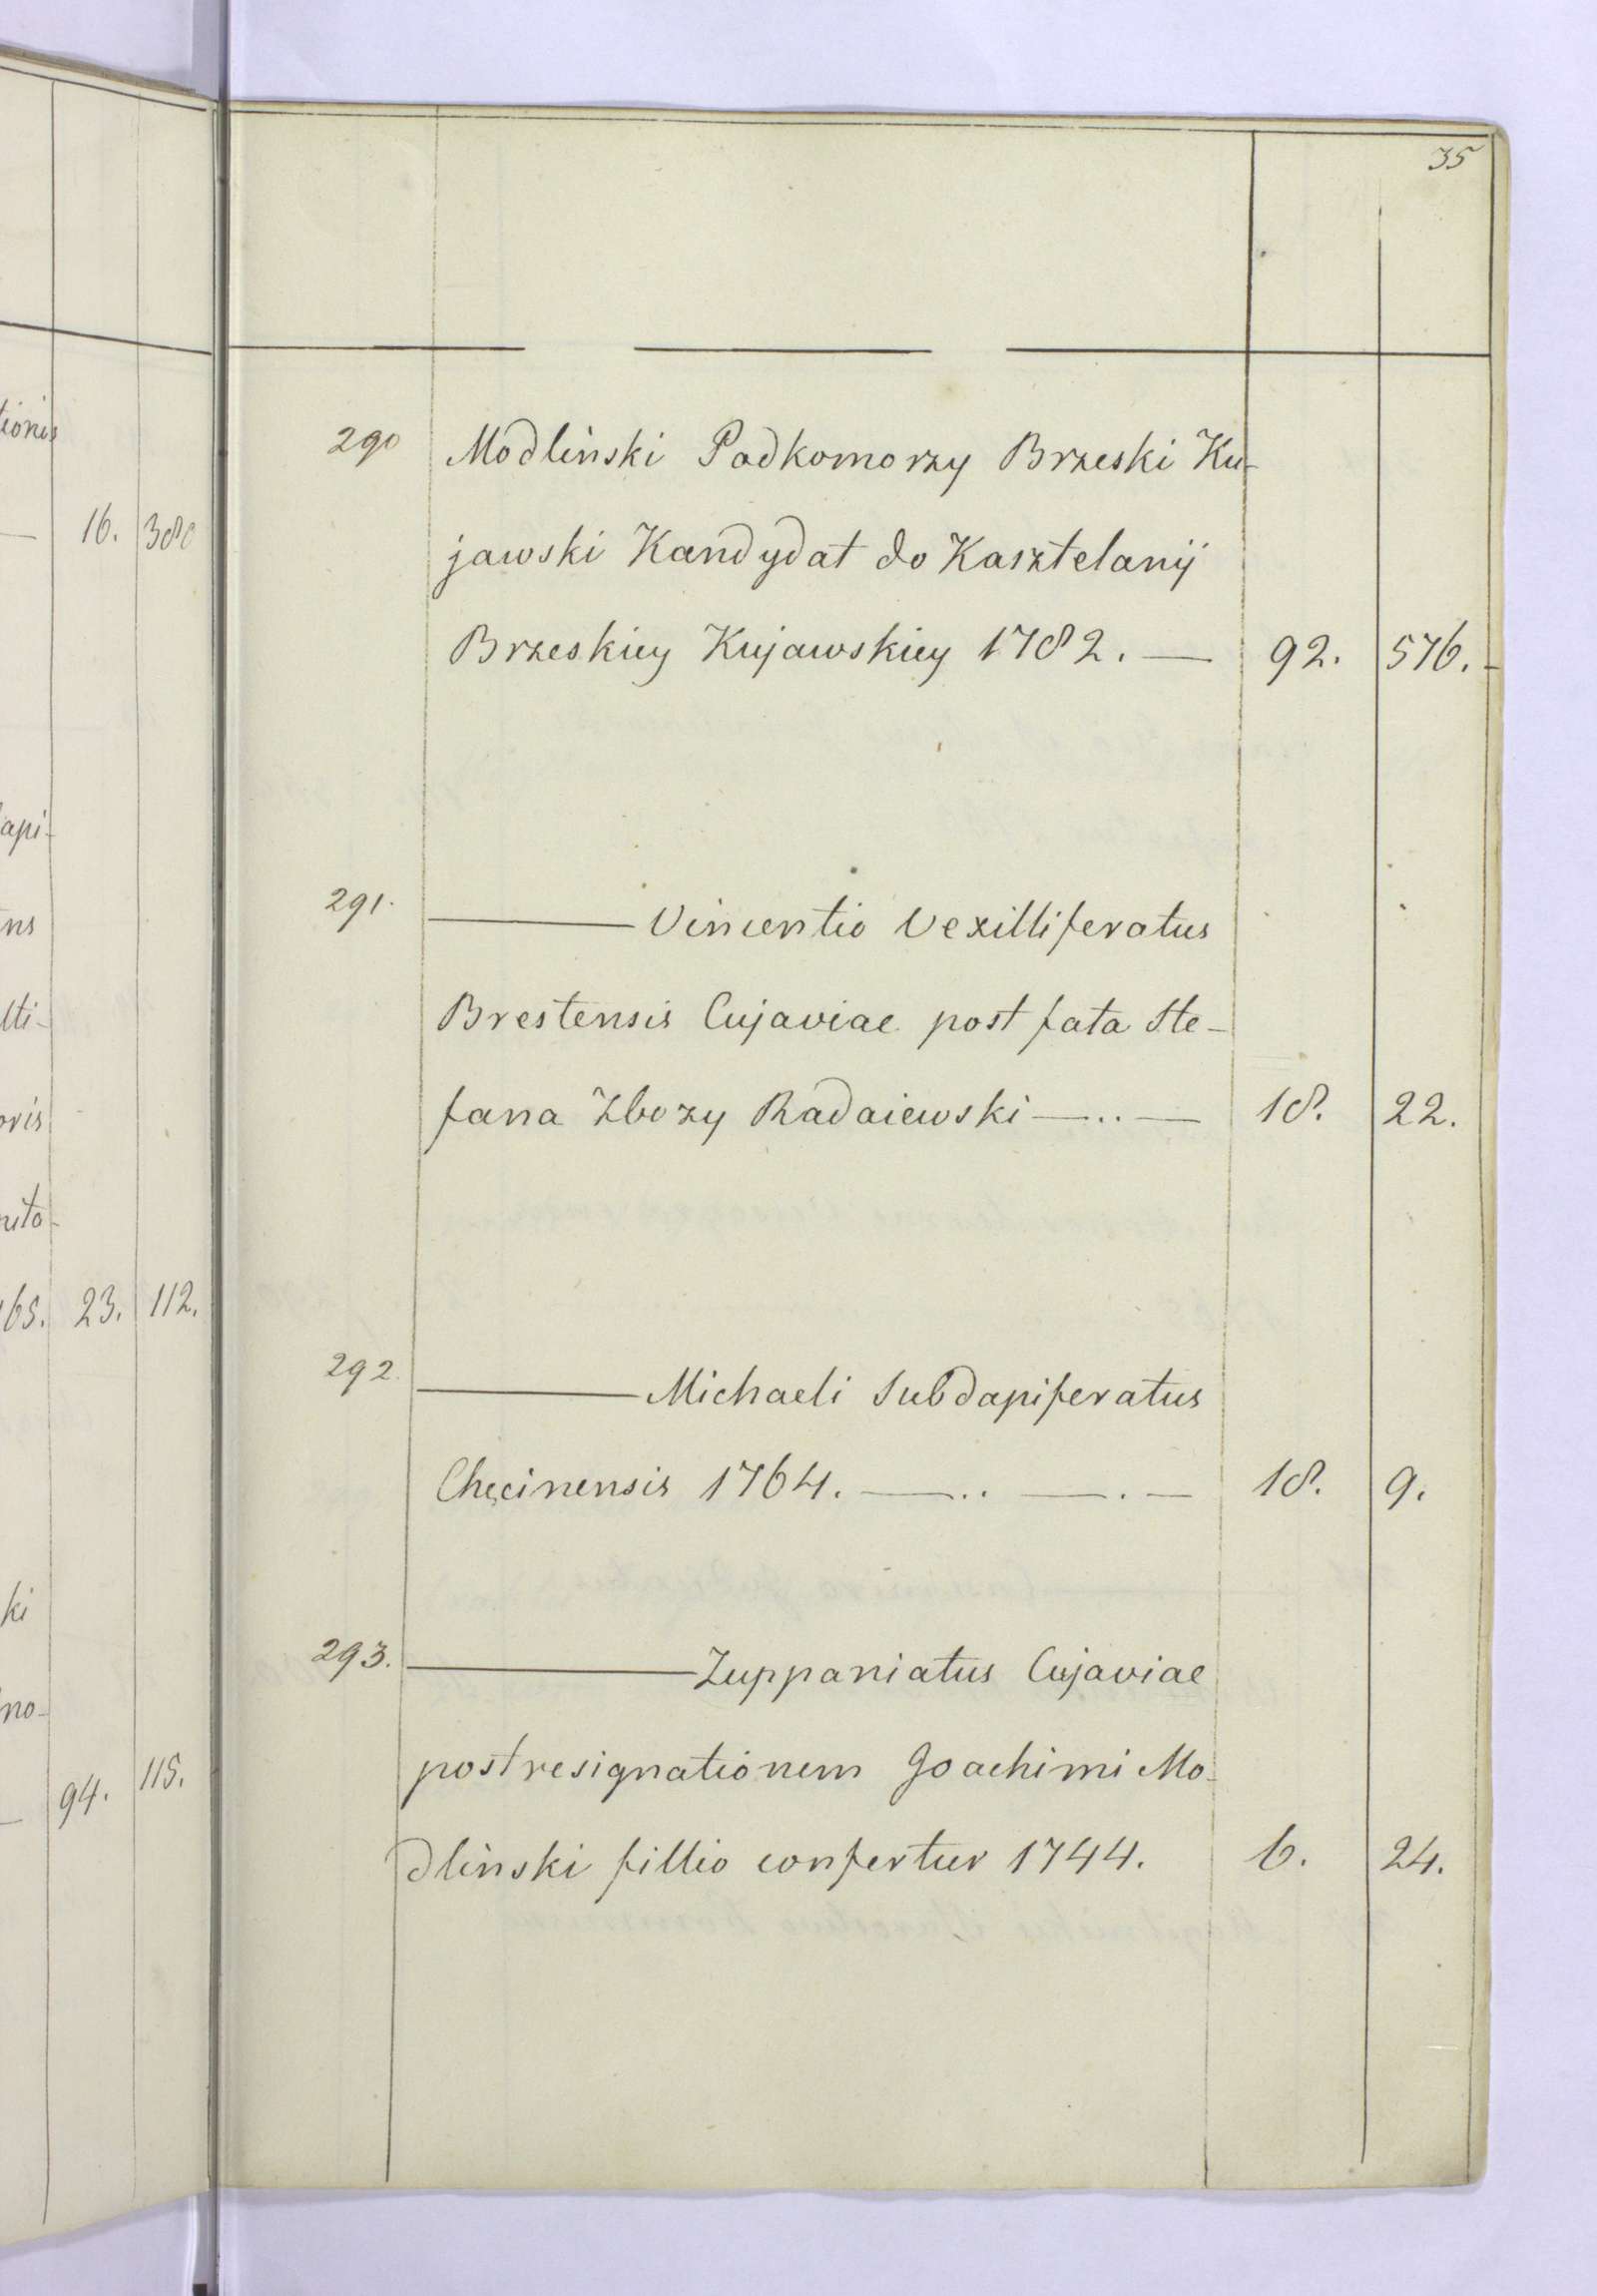 35
290 Modlinski Podkomorzy Brzeski Ku-
jawski Kandydat do Kasztelanij
Brzeskiey Kujawskiey 1782. — 92. 576.-
291. ——— Vincentio Vexilliferatus
Brestensis Cujaviae post fata Ste-
fana Zbozy Radaiewski —..— 18. 22.
292. ——— Michaeli Subdapiferatus
Chęcinensis 1764. —.. —.— 18. 9.
293. ——— Zuppaniatus Cujaviae
post resignationem Joachimi Mo-
dlinski fillio confertur 1744. 6. 24.
tionis
— 16. 380
api-
ns
lti-
oris
65. 23. 112.
ki
no-
— 94. 115.